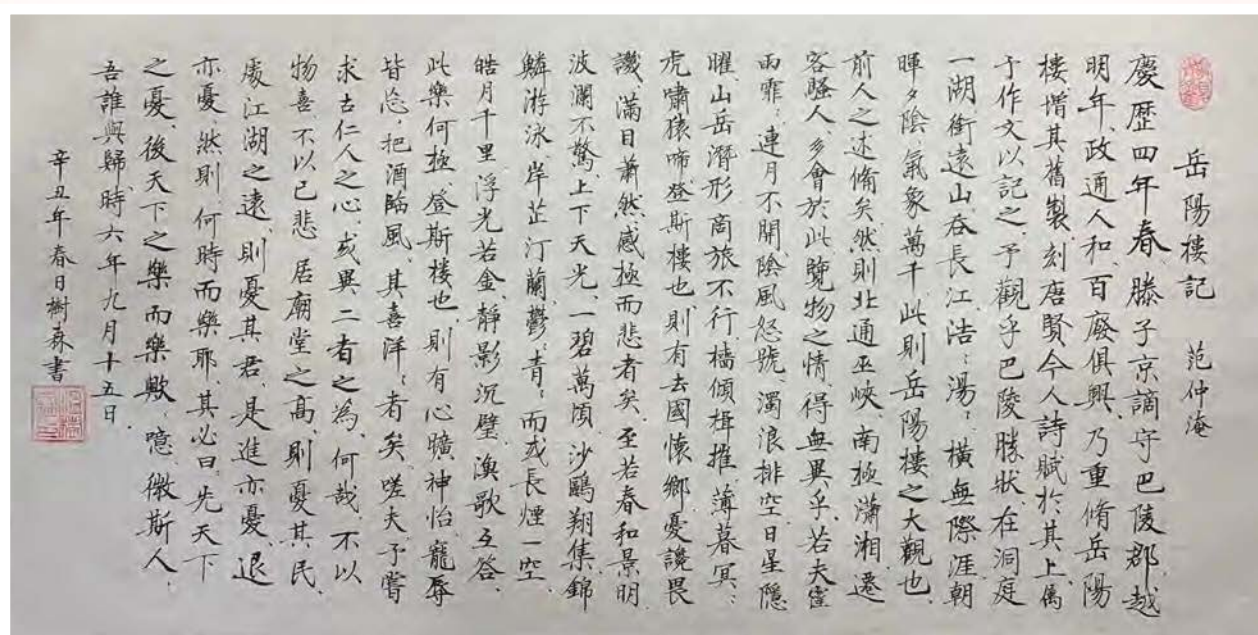 岳陽樓記 范仲淹
慶歷四年春、滕子京謫守巴陵郡、越
明年、政通人和百廢俱興、乃重脩岳陽
樓、增其舊製、刻唐賢今人詩賦於其上、屬
予作文以記之、予觀乎巴陵勝狀、在洞庭
一湖、銜遠山、吞長江、浩:湯:、橫無際涯、朝
暉夕陰、氣象萬千、此則岳陽樓之大觀也、
前人之述備矣、然則北通巫峽、南極瀟湘、遷
客騷人、多會於此、覽物之情、得無異乎、若夫霪
雨霏:、連月不開、陰風怒號、濁浪排空、日星隱
曜、山岳潛形、商旅不行、檣傾楫摧、薄暮冥:、
虎嘯猿啼、登斯樓也、則有去國懷鄉、憂讒畏
譏、滿目蕭然、感極而悲者矣、至若春和景明、
波瀾不驚、上下天光、一碧萬頃、沙鷗翔集、錦
鱗游泳、岸芷汀蘭、鬱:青:、而或長煙一空、
皓月千里、浮光若金、靜影沉璧、漁歌互答、
此樂何極、登斯樓也、則有心曠神怡、寵辱
皆忘、把酒臨風、其喜洋:者矣、嗟夫、予嘗
求古仁人之心、或異二者之為、何哉、不以
物喜、不以己悲、居廟堂之高、則憂其民、
處江湖之遠、則憂其君、是進亦憂、退
亦憂、然則、何時而樂耶、其必曰、先天下
之憂、後天下之樂而樂歟、噫、微斯人、
吾誰與歸、時六年九月十五日、
辛丑年春日樹森書